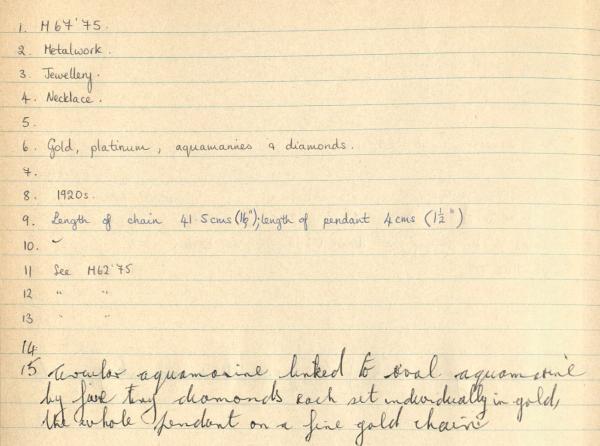 1. M67'75.
2. Metalwork.
3. Jewellery.
4. Necklace.
5.
6. Gold, platinum, aquamarines & diamonds.
7.
8. 1920s.
9. Length of chain 41.5cms (16"); length of pendant 4cms (1½")
10. "
11 See M62'75
12 " "
13 " "
14
15 Circular aquamarine linked to oval aquamarine
by five tiny diamonds each set individually in gold,
the whole pendant on a fine gold chain